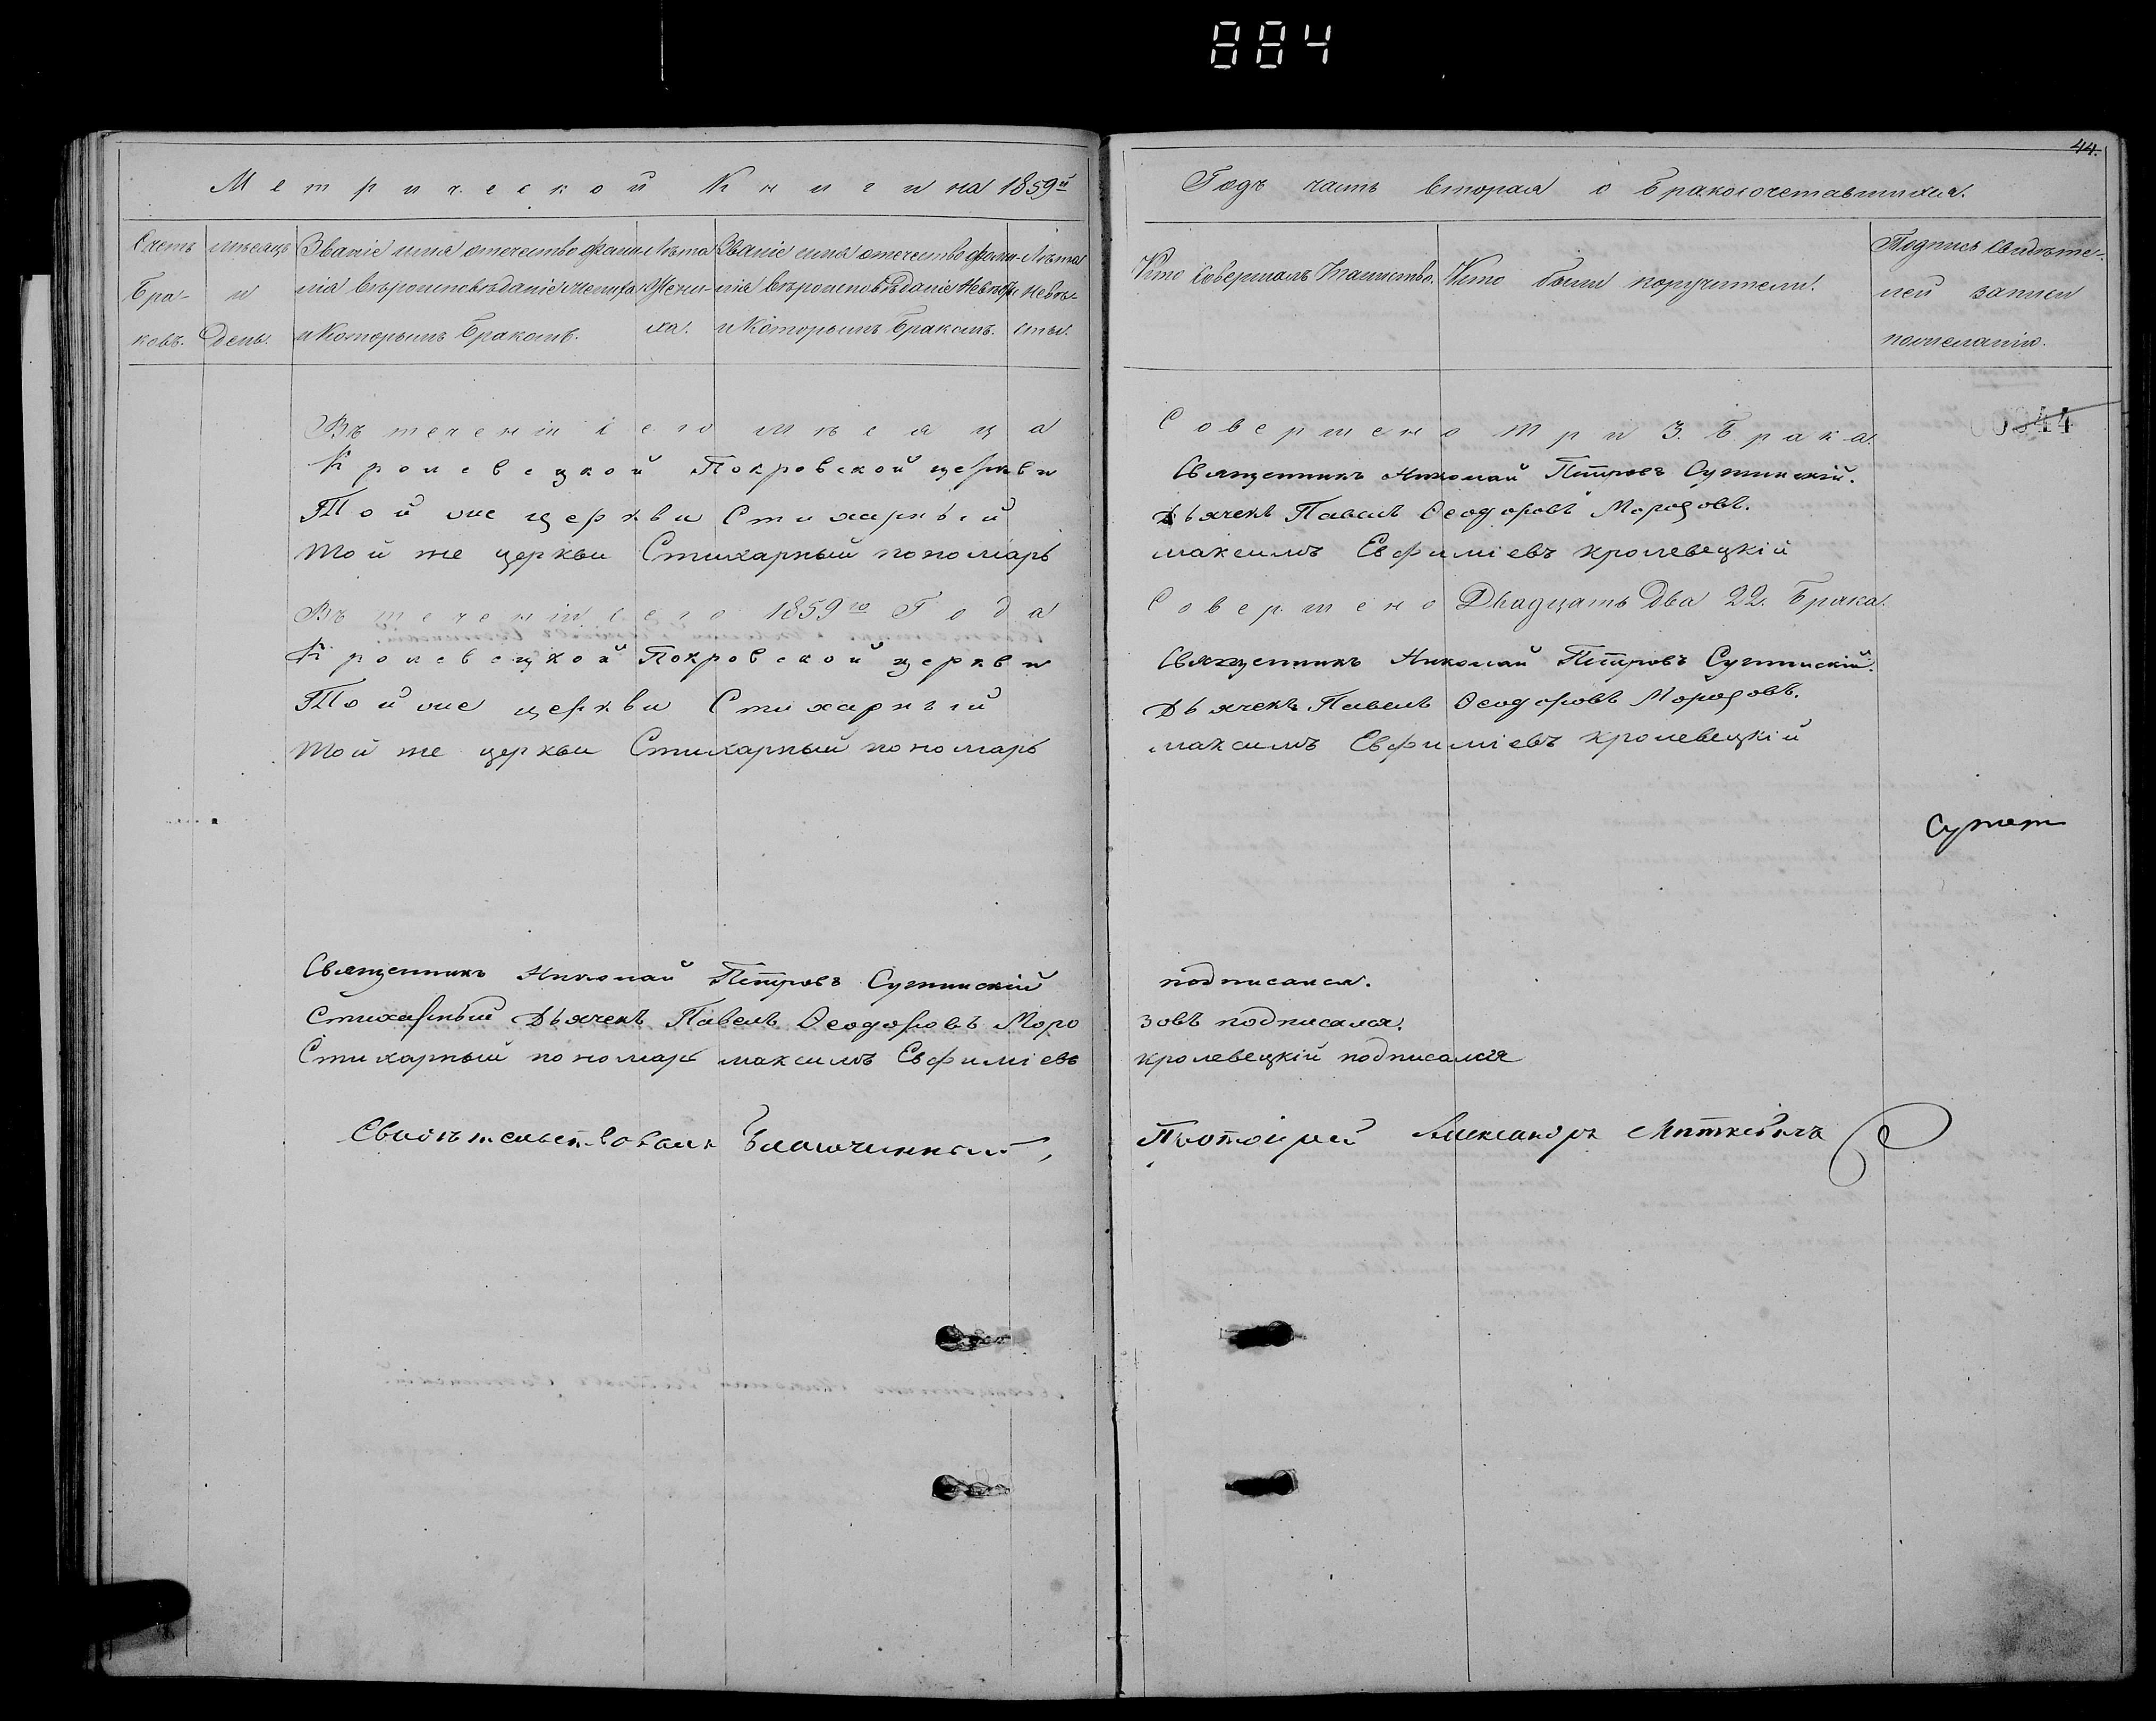 884
44.
Метрической Книги на 1859й
Годъ часть вторая о бракосочетавшихся.
Счетъ Бра-ковъ.
мѣсяцъ и День.
Званіе имя отечество фами-
лія вѣроисповѣданіе жениха
и Которымъ Бракомъ.
Лѣта
Жени-
ха.
Званіе имя отечество фами-
лія вѣроисповѣданіе Невѣсты
и Которымъ Бракомъ.
Лѣта
Невѣ-
сты.
Кто Совершалъ Таинство.
Кто были поручители.
Подпись Свидѣте-
лей записи
по желанію.
00844
Въ теченіи сего мѣсяца Совершено три 3. Брака.
Кролевецкой Покровской церкви Священникъ Николай Петровъ Сутинскій.
Той же церкви Стихарный Дьячекъ Павелъ Ѳеодоровъ Морозовъ.
той же церкви Стихарный пономарь максимъ Евфиміевъ кролевецкій
Въ теченіи сего 1859го Года Совершено Двадцать Два 22. Брака.
Кролевецкой Покровской церкви Священникъ Николай Петровъ Сутинскій.
Той же церкви Стихарный Дьячекъ Павелъ Ѳеодоровъ Морозовъ.
той же церкви Стихарный пономарь максимъ Евфиміевъ кролевецкій
Священникъ Николай Петровъ Сутинскій подписался.
Стихарный Дьячекъ Павелъ Ѳеодоровъ Моро зовъ подписался.
Стихарный пономарь максимъ Евфиміевъ кролевецкій подписался
Свидѣтельствовалъ Благочинный, Протоіерей Александръ Миткевичъ